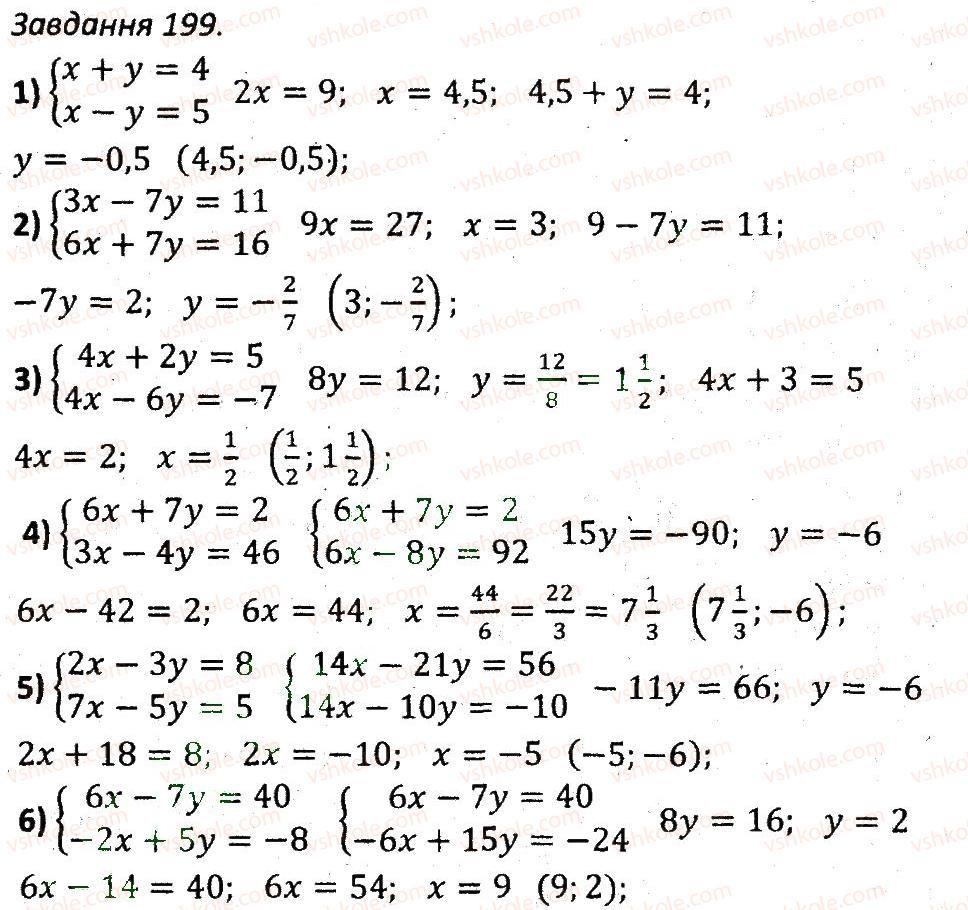 Завдання 199.
1) {x + y = 4 {x − y = 5 2x = 9; x = 4,5; 4,5 + y = 4;
y = −0,5 (4,5; −0,5);
2) {3x − 7y = 11 {6x + 7y = 16 9x = 27; x = 3; 9 − 7y = 11;
−7y = 2; y = −2/7 (3; −2/7);
3) {4x + 2y = 5 {4x − 6y = −7 8y = 12; y = 12/8 = 1 1/2; 4x + 3 = 5
4x = 2; x = 1/2 (1/2; 1 1/2);
4) {6x + 7y = 2 {3x − 4y = 46 {6x + 7y = 2 {6x − 8y = 92 15y = −90; y = −6
6x − 42 = 2; 6x = 44; x = 44/6 = 22/3 = 7 1/3 (7 1/3; −6);
5) {2x − 3y = 8 {7x − 5y = 5 {14x − 21y = 56 {14x − 10y = −10 − 11y = 66; y = −6
2x + 18 = 8; 2x = −10; x = −5 (−5; −6);
6) {6x − 7y = 40 {−2x + 5y = −8 {6x − 7y = 40 {−6x + 15y = −24 8y = 16; y = 2
6x − 14 = 40; 6x = 54; x = 9 (9; 2);